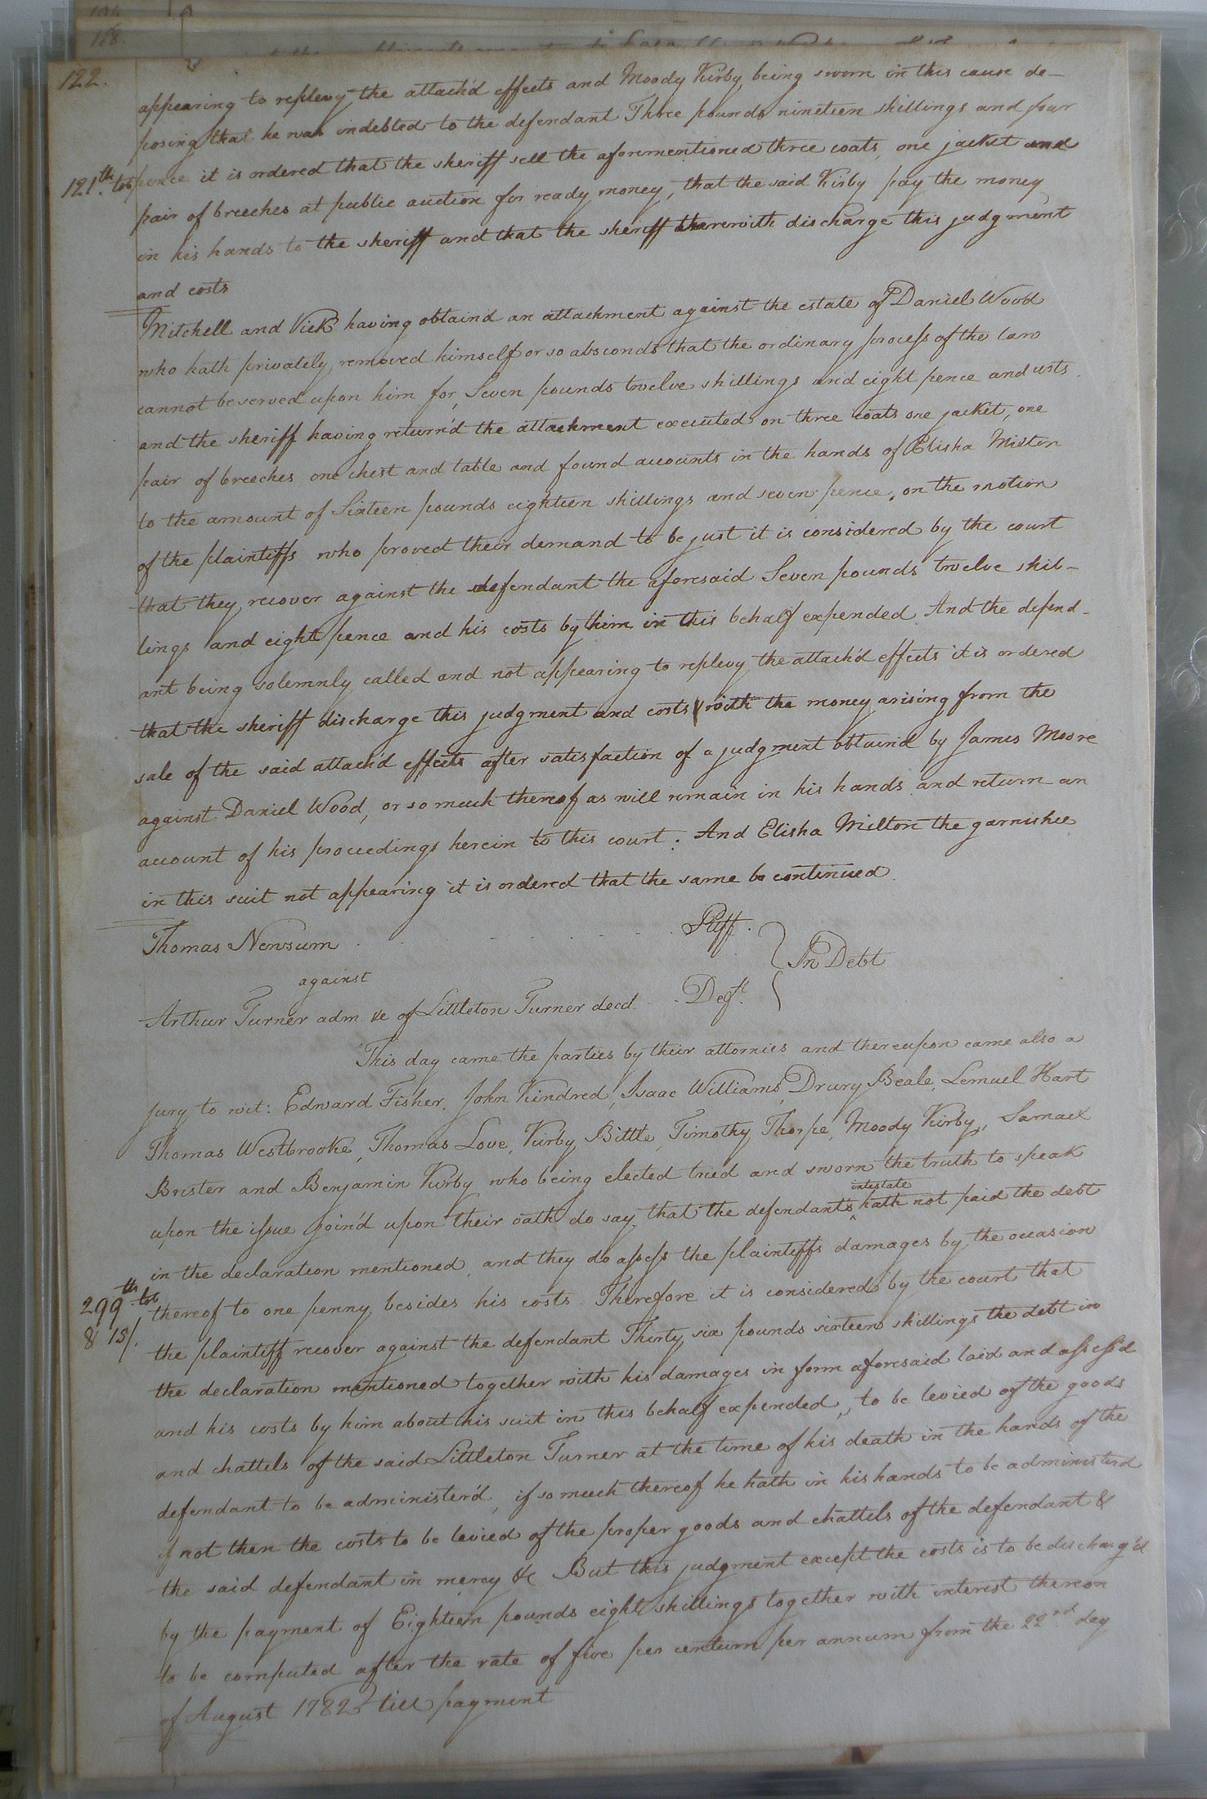 122.
appearing to replevy the attach'd effects and Moody Kirby being sworn in this cause de-
posing that he was indebted to the defendant Three pounds nineteen shillings and four
121th tob
pence it is ordered that the sheriff sell the aforementioned three coats, one jacket and
pair of breeches at public auction for ready money, that the said Kirby pay the money
in his hands to the sheriff and that the sheriff therewith discharge this judgment
and costs
Mitchell and Vick having obtain'd an attachment against the estate of Daniel Wood
who hath privately removed himself or so absconds that the ordinary process of the law
cannot be served upon him for Seven pounds twelve shillings and eight pence and costs
and the sheriff having return'd the attachment executed on three coats one jacket, one
pair of breeches one chest and table and found accounts in the hands of Elisha Milton
to the amount of Sixteen pounds eighteen shillings and seven pence, on the motion
of the plaintiffs who proved their demand to be just it is considered by the court
that they recover against the defendant the aforesaid Seven pounds twelve shil-
lings and eight pence and his costs by him in this behalf expended. And the defend-
ant being solemnly called and not appearing to replevy the attach'd effects it is ordered
that the sheriff discharge this judgment and costs with the money arising from the
sale of the said attach'd effects after satisfaction of a judgment obtain'd by James Moore
against Daniel Wood, or so much thereof as will remain in his hands and return an
account of his proceedings herein to this court. And Elisha Milton the garnishee
in this suit not appearing it is ordered that the same be continued.
Thomas Newsum Pltff.
against In Debt
Arthur Turner adm &c of Littleton Turner decd. Deft.
This day came the parties by their attornies and thereupon came also a
jury to wit: Edward Fisher, John Kindred, Isaac Williams, Drury Beale, Lemuel Hart
Thomas Westbrooke, Thomas Love, Kirby Bittle, Timothy Thorpe, Moody Kirby,
Brister and Benjamin Kirby who being elected tried and sworn the truth to speak
upon the issue join'd upon their oath do say that the defendant's intestate hath not paid the debt
in the declaration mentioned and they do assess the plaintiffs damages by the occasion
299th tob
8 15/.
thereof to one penny besides his costs. Therefore it is considered by the court that
the plaintiff recover against the defendant Thirty six pounds sixteen shillings the debt in
the declaration mentioned together with his damages in form aforesaid laid and assess'd
and his costs by him about his suit in this behalf expended, to be levied of the goods
and chattels of the said Littleton Turner at the time of his death in the hands of the
defendant to be administer'd, if so much thereof he hath in his hands to be administer'd
if not then the costs to be levied of the proper goods and chattels of the defendant &
the said defendant in mercy &c But this judgment except the costs is to be discharg'd
by the payment of Eighteen pounds eight shillings together with interest thereon
to be computed after the rate of five per centum per annum from the 22nd day
of August 1782 till payment